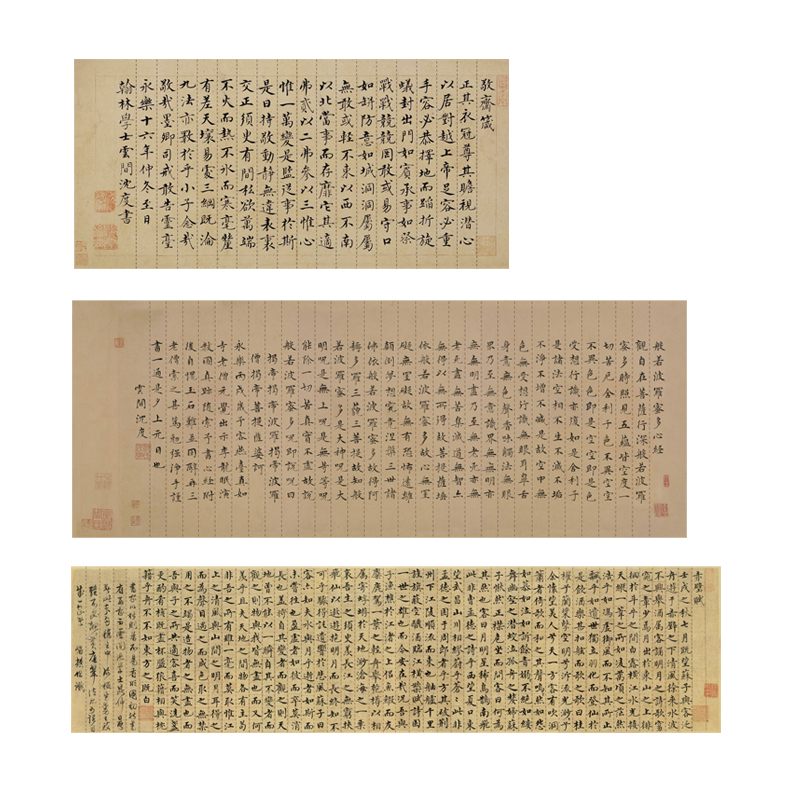 敬齋箴
正其衣冠尊其瞻視潛心
以居對越上帝足容必重
手容必恭擇地而蹈折旋
蟻封出門如賓承事如祭
戰戰兢兢罔敢或易守口
如缾防意如城洞洞屬屬
無敢或輕不東以西不南
以北當事而存靡它其適
弗貳以二弗參以三惟心
惟一萬變是監從事於斯
是曰持敬動靜無違表裏
交正須臾有間私欲萬端
不火而熱不冰而寒毫釐
有差天壤易處三綱既淪
九法亦斁於乎小子念哉
敬哉墨卿司戒敢告靈臺
永樂十六年仲冬至日
翰林學士雲間沈度書
般若波羅蜜多心經
觀自在菩薩行深般若波羅
蜜多時照見五蘊皆空度一
切苦厄舍利子色不異空空
不異色色即是空空即是色
受想行識亦復如是舍利子
是諸法空相不生不滅不垢
不淨不增不減是故空中無
色無受想行識無眼耳鼻舌
身意無色聲香味觸法無眼
界乃至無意識界無無明亦
無無明盡乃至無老死亦無
老死盡無苦集滅道無智亦
無得以無所得故菩提薩埵
依般若波羅蜜多故心無罣
礙無罣礙故無有恐怖遠離
顛倒夢想究竟涅槃三世諸
佛依般若波羅蜜多故得阿
耨多羅三藐三菩提故知般
若波羅蜜多是大神呪是大
明呪是無上呪是無等等呪
能除一切苦真實不虛故說
般若波羅蜜多呪即說呪曰
揭帝揭帝波羅揭帝波羅
僧揭帝菩提薩婆訶
永樂丙戌歲予客燕臺真如
寺老僧元覺出示李龍眠演
教圖真跡隨索予書心經附
後自愧玉石雜並固辭再三
老僧索之甚篤勉強淨手謹
書一通是夕上元日也
雲間沈度
赤壁賦
壬戌之秋七月既望蘇子與客泛
舟遊于赤壁之下清風徐來水波
不興舉酒屬客誦明月之詩歌窈
窕之章少焉月出於東山之上徘
徊於斗牛之間白露橫江水光接
天縱一葦之所如凌萬頃之茫然
浩浩乎如馮虛御風而不知其所止
飄飄乎如遺世獨立羽化而登仙於
是飲酒樂甚扣舷而歌之歌曰桂
櫂兮蘭槳擊空明兮泝流光渺渺兮
余懷望美人兮天一方客有吹洞
簫者倚歌而和之其聲嗚嗚然如怨
如慕如泣如訴餘音嫋嫋不絕如縷
舞幽壑之潛蛟泣孤舟之嫠婦蘇
子愀然正襟危坐而問客曰何為
其然也客曰月明星稀烏鵲南飛
此非曹孟德之詩乎西望夏口東
望武昌山川相繆鬱乎蒼蒼此非
孟德之困于周郎者乎方其破荊
州下江陵順流而東也舳艫千里
旌旗蔽空釃酒臨江橫槊賦詩固
一世之雄也而今安在哉況吾與
子漁樵於江渚之上侶魚蝦而友
麋鹿駕一葉之輕舟舉匏樽以相
屬寄蜉蝣於天地渺滄海之一粟
哀吾生之須臾羨長江之無窮挾
飛仙以遨遊抱明月而長終知不
可乎驟得託遺響於悲風蘇子曰
客亦知夫水與月乎逝者如斯而
未嘗往也盈虛者如彼而卒莫消
長也蓋將自其變者而觀之則天
地曾不能以一瞬自其不變者而
觀之則物與我皆無盡也而又何
羨乎且夫天地之間物各有主苟
非吾之所有雖一毫而莫取惟江
上之清風與山間之明月耳得之
而為聲目遇之而成色取之無禁
用之不竭是造物者之無盡藏也
吾與子之所共適客喜而笑洗盞
更酌肴核既盡杯盤狼籍相與枕
藉乎舟中不知東方之既白